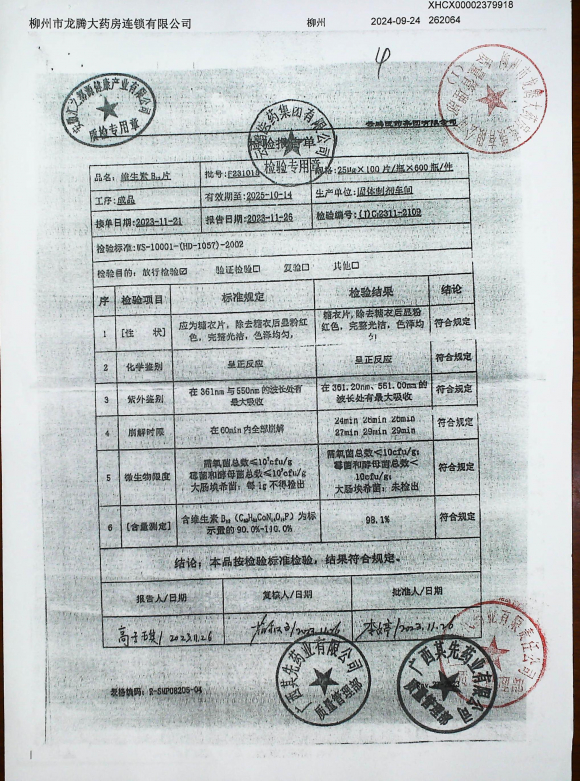 XHCX00002379918
柳州市龙腾大药房连锁有限公司 柳州 2024-09-24 262064
检验报告单
检验专用章
质检专用章
品名：维生素B₁₂片 批号：F231018 规格：25μg×100片/瓶×600瓶/件
工序：成品 有效期至：2025-10-14 生产单位：固体制剂车间
接单日期：2023-11-21 报告日期：2023-11-26 检验编号：(J)Cc2311-2109
检验标准：WS-10001-(HD-1057)-2002
检验目的：放行检验☑ 验证检验□ 复验□ 其他□
序 检验项目 标准规定 检验结果 结论
1 [性 状] 应为糖衣片，除去糖衣后显粉红色，完整光洁，色泽均匀， 糖衣片，除去糖衣后显粉红色，完整光洁，色泽均匀 符合规定
2 化学鉴别 呈正反应 呈正反应 符合规定
3 紫外鉴别 在361nm与550nm的波长处有最大吸收 在361.20nm、551.00nm的波长处有最大吸收 符合规定
4 崩解时限 在60min内全部崩解 24min 26min 26min 27min 29min 29min 符合规定
5 微生物限度 需氧菌总数≤10³cfu/g 霉菌和酵母菌总数≤10²cfu/g 大肠埃希菌：每1g不得检出 需氧菌总数＜10cfu/g； 霉菌和酵母菌总数＜10cfu/g； 大肠埃希菌：未检出 符合规定
6 [含量测定] 含维生素B₁₂（C₆₃H₈₈CoN₁₄O₁₄P）为标示量的90.0%-110.0% 98.1% 符合规定
结论：本品按检验标准检验，结果符合规定。
报告人/日期 复核人/日期 批准人/日期
2023.11.26 2023.11.26 2023.11.26
表格编码：R-SMP08205-04
广西莫先药业有限公司
质量管理部
广西莫先药业有限公司
质量管理部